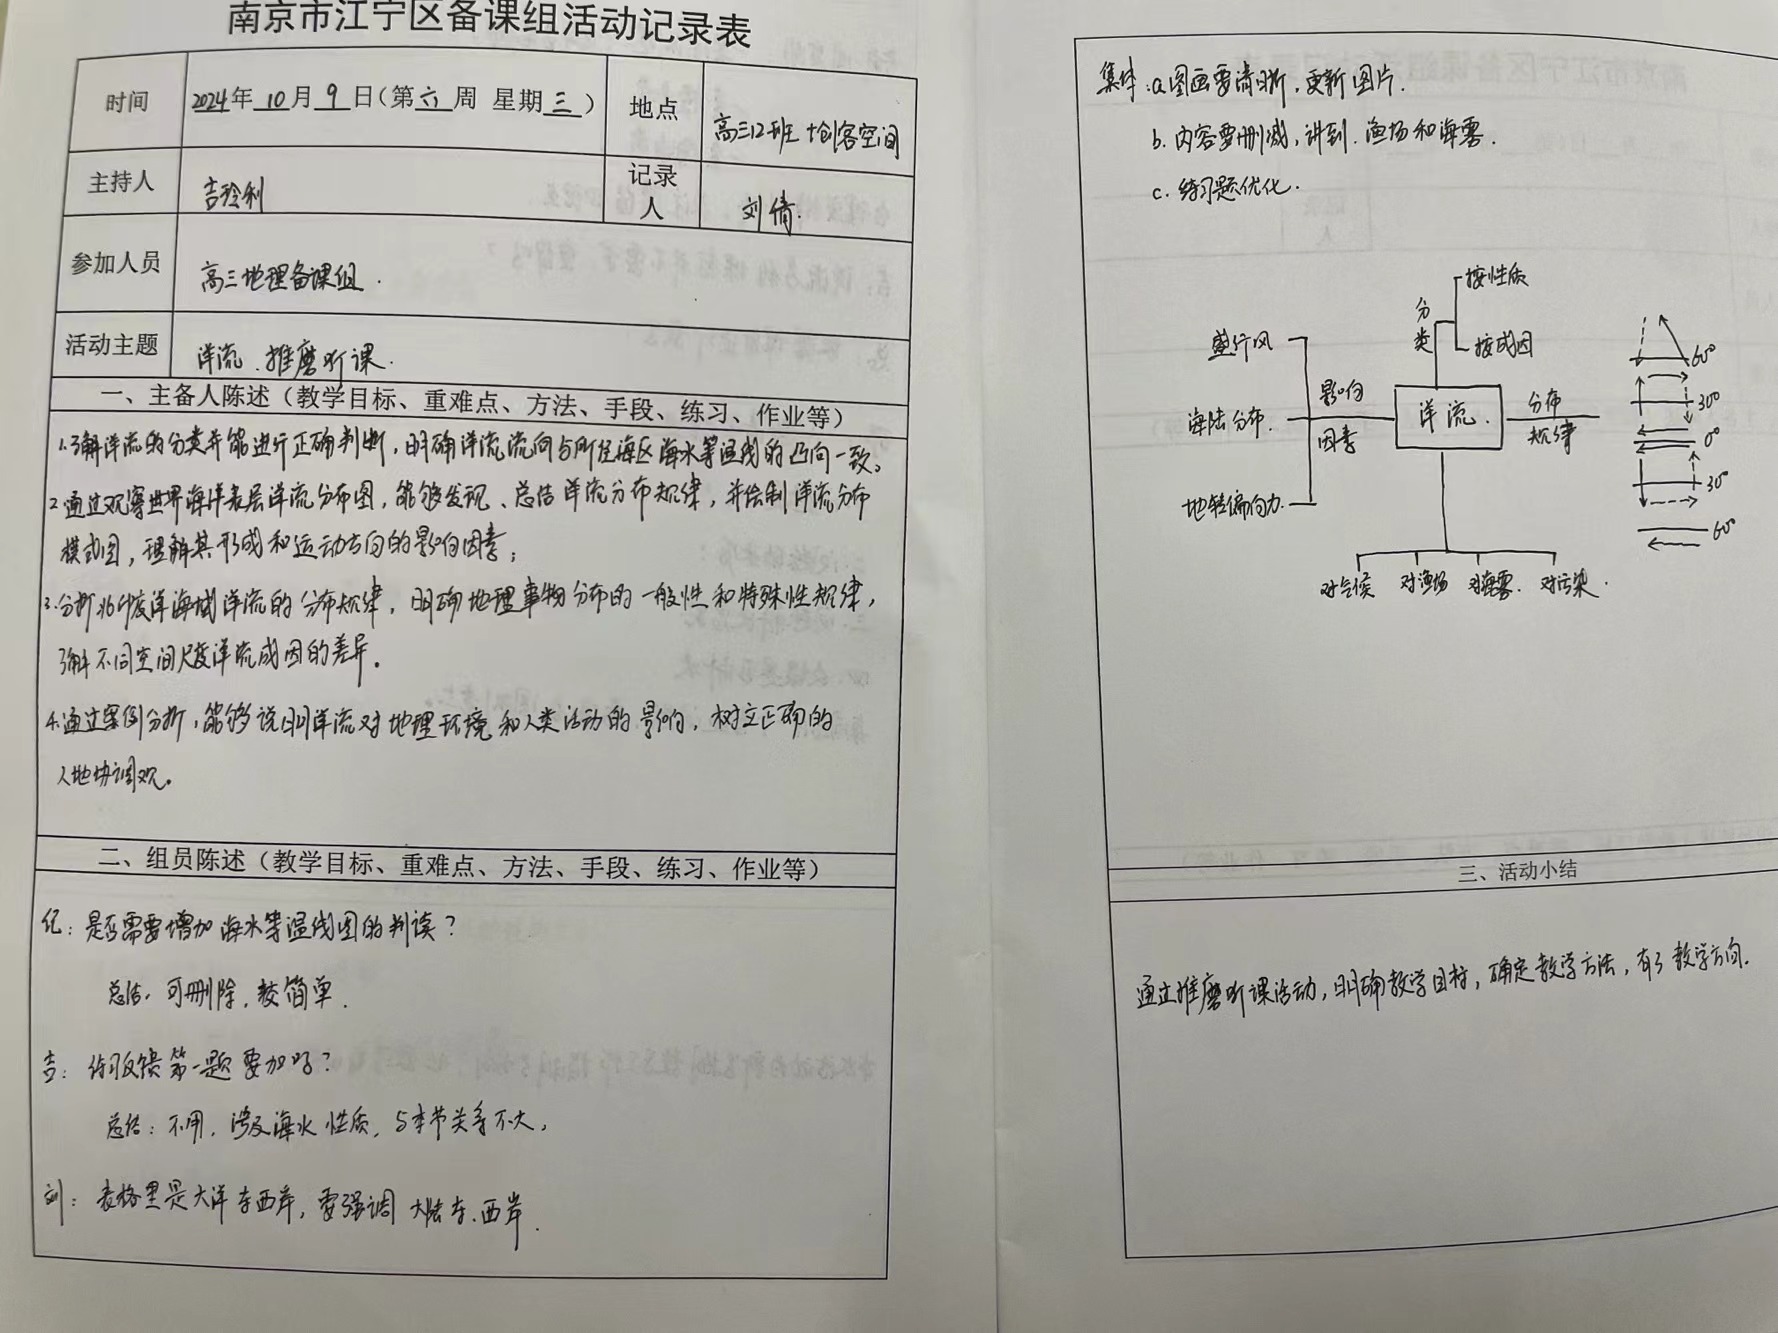 南京市江宁区备课组活动记录表
时间 2024年10月9日(第六周 星期三) 地点 高三12班+创客空间
主持人 吉玲利 记录人 刘倩.
参加人员 高三地理备课组.
活动主题 洋流.推磨听课.
一、主备人陈述（教学目标、重难点、方法、手段、练习、作业等）
1.了解洋流的分类并能进行正确判断，明确洋流流向与所经海区海水等温线的凸向一致。
2.通过观察世界海洋表层洋流分布图，能够发现、总结洋流分布规律，并绘制洋流分布
模式图，理解其形成和运动方向的影响因素；
3.分析北印度洋海域洋流的分布规律，明确地理事物分布的一般性和特殊性规律，
了解不同空间尺度洋流成因的差异。
4.通过案例分析，能够说明洋流对地理环境和人类活动的影响，树立正确的
人地协调观。
二、组员陈述（教学目标、重难点、方法、手段、练习、作业等）
纪：是否需要增加海水等温线图的判读？
总结.可删除.较简单.
吉：练习反馈第一题要加吗？
总结：不用，涉及海水性质，与本节关系不大，
刘：表格里是大洋东西岸，要强调大陆东.西岸.
集体：a.图画要清晰，更新图片.
b.内容要删减，讲到.渔场和海雾.
c.练习题优化.
按性质
分类
按成因
盛行风
海陆分布.
地转偏向力.
影响
因素
洋流.
分布
规律
60°
30°
0°
30°
60°
对气候 对渔场 对海雾. 对污染.
三、活动小结
通过推磨听课活动，明确教学目标，确定教学方法，有了教学方向.